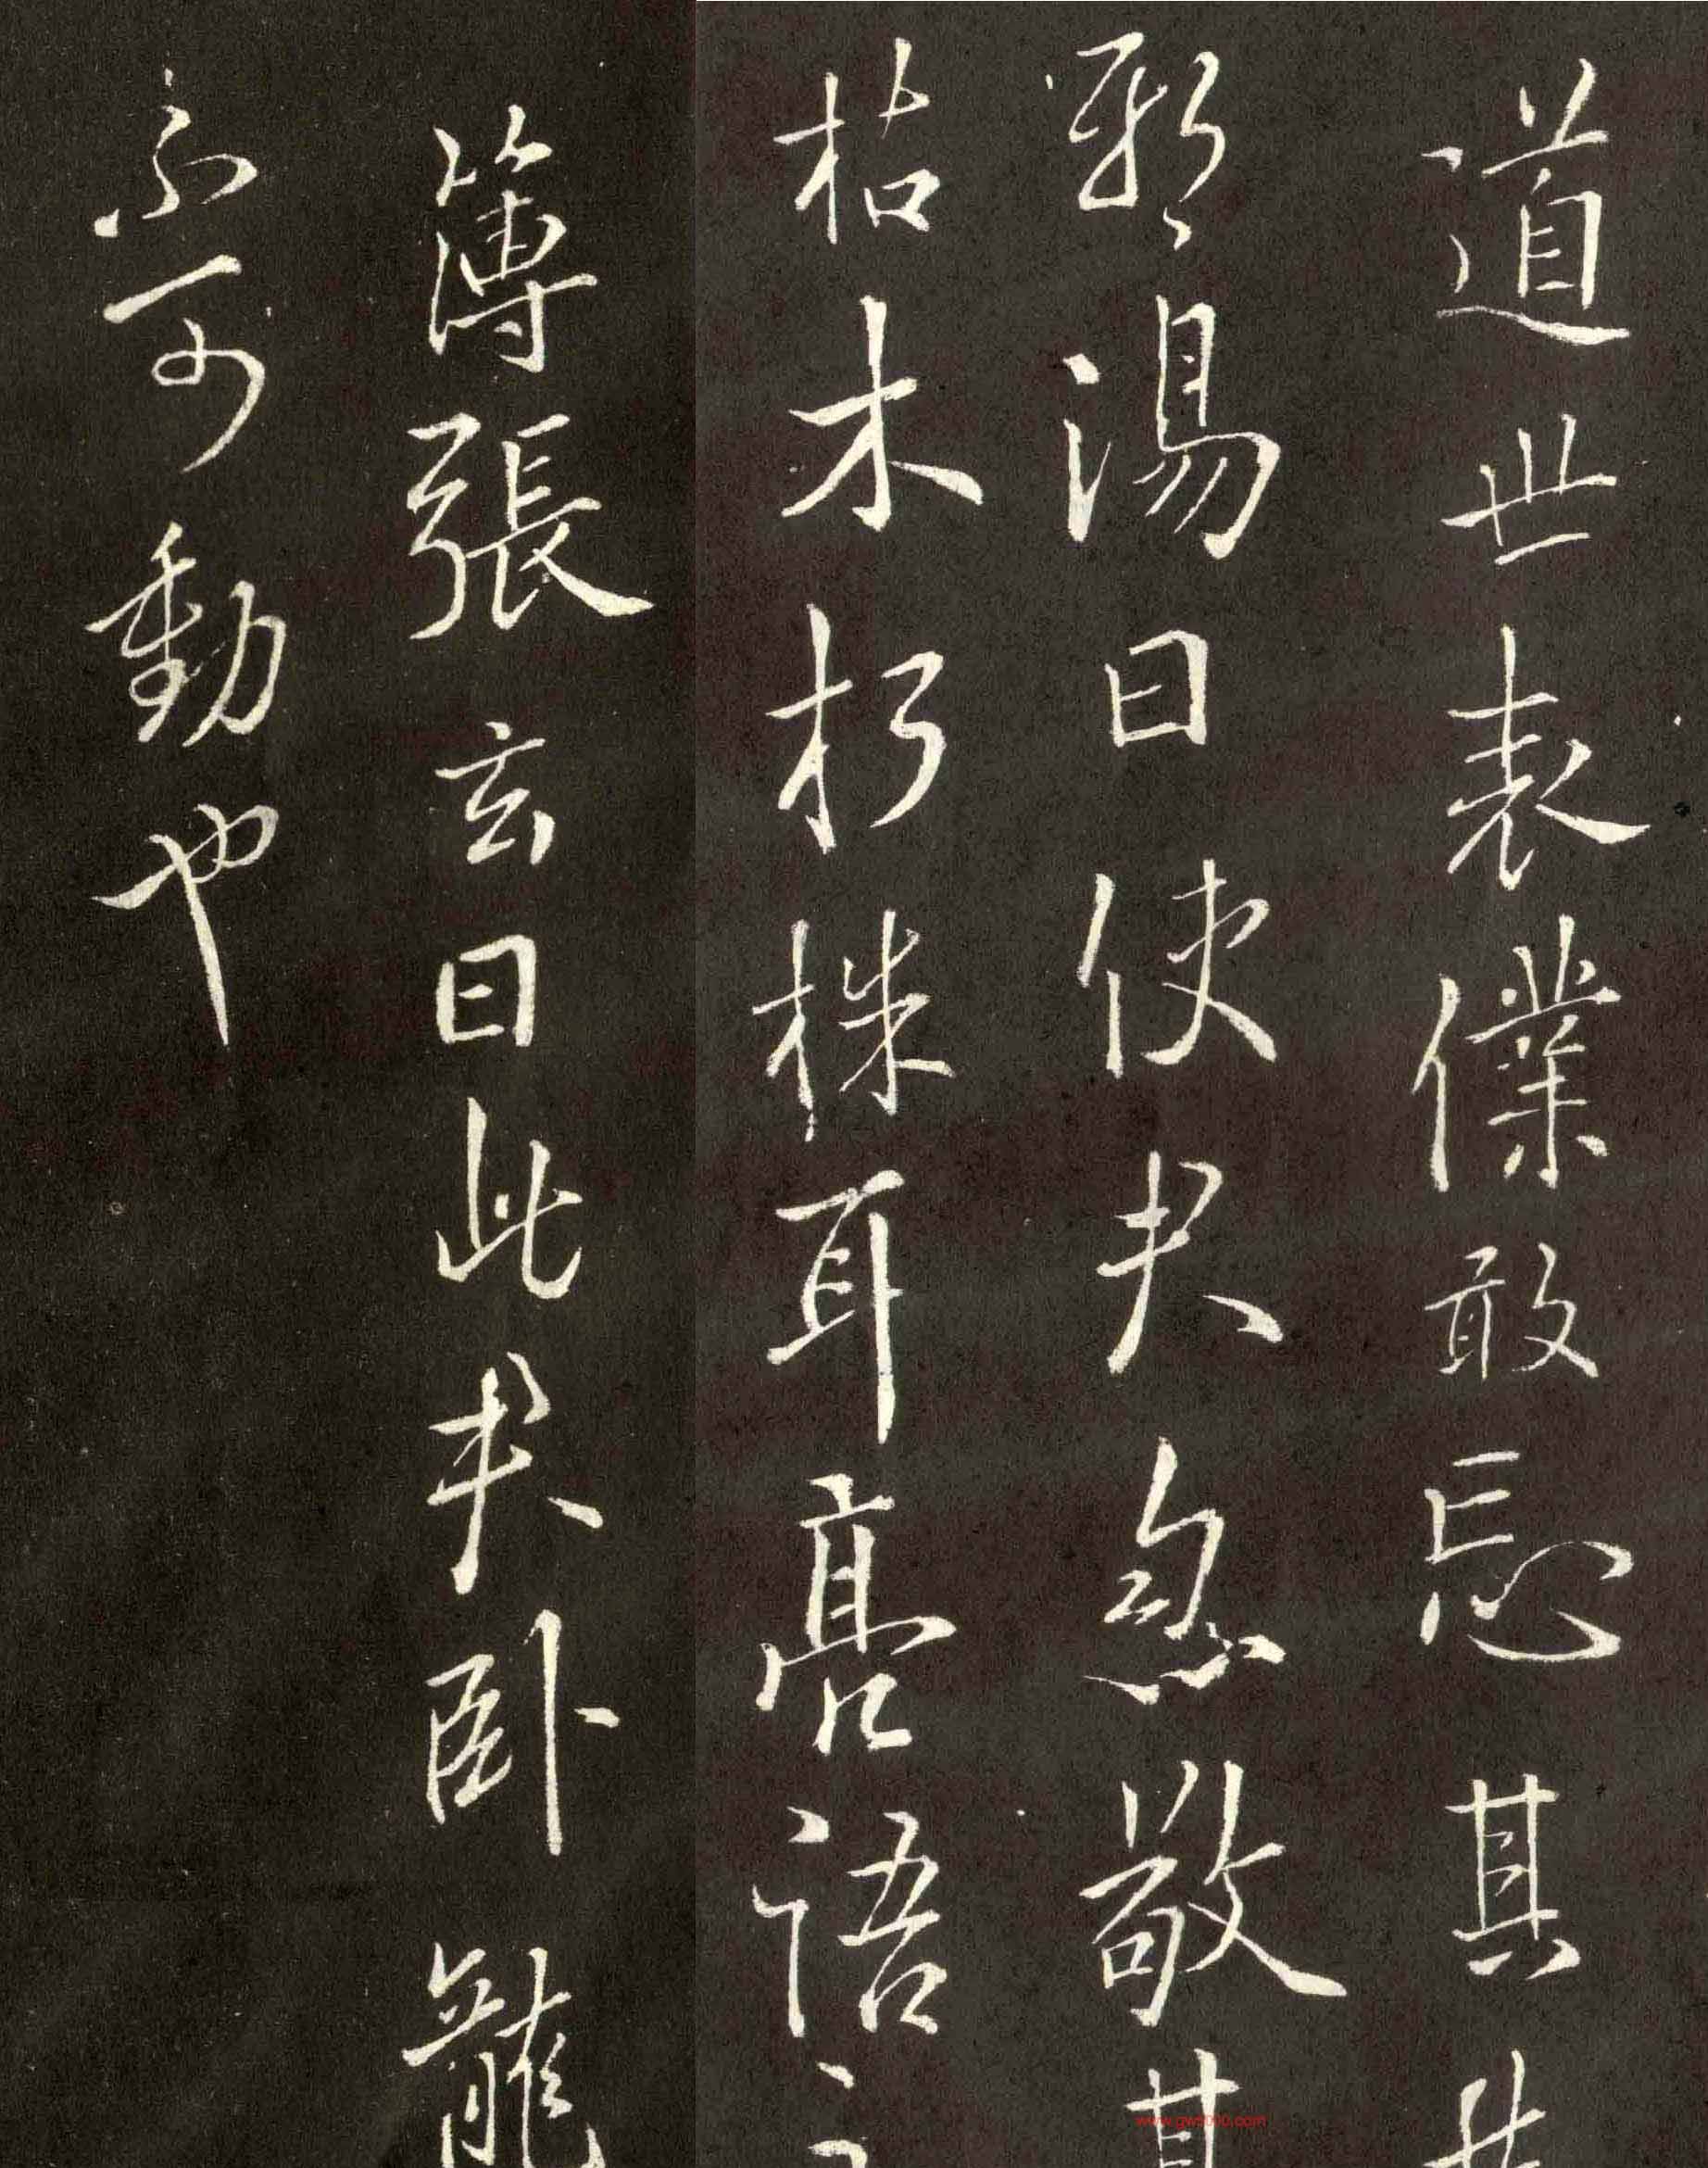 道世表僕敢忘其
影湯曰使夫忽敬其
枯木朽株耳亮語之
簿張玄曰此夫卧龍
不可動也
www.gw5000.com